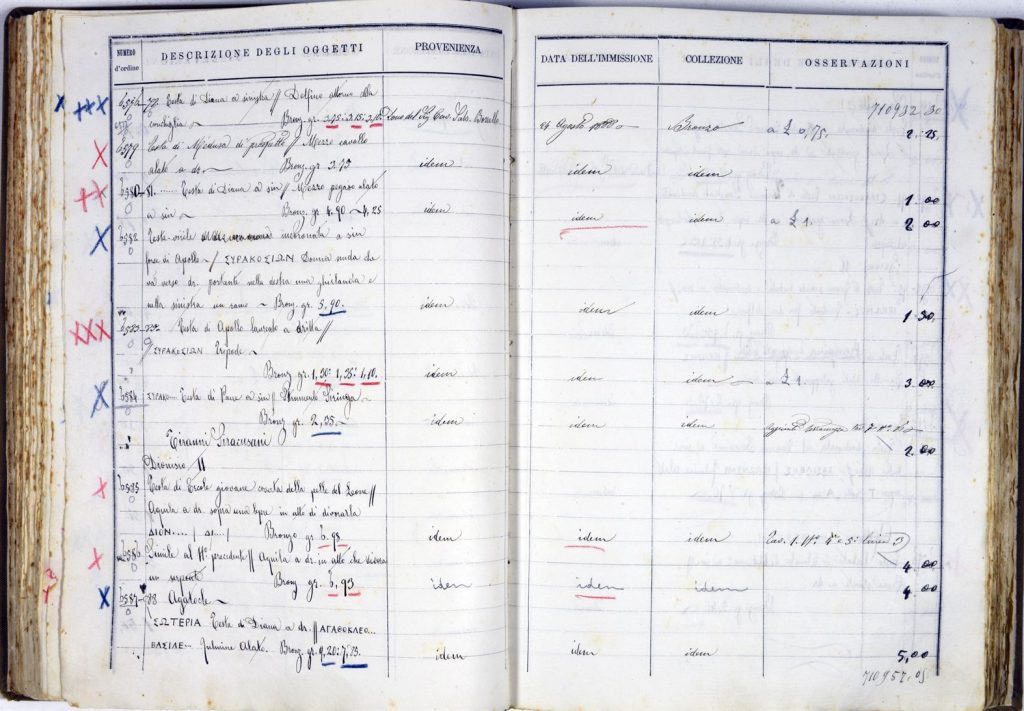 NUMERO d'ordine
DESCRIZIONE DEGLI OGGETTI
PROVENIENZA
DATA DELL'IMMISSIONE
COLLEZIONE
OSSERVAZIONI
710932.80
Testa di Diana a sinistra // Delfino attorno alla
conchiglia Bronz. gr. 24 Agosto Bronzo a £ 0,75. 2.25
6579 Testa di Medusa di prospetto // Mezzo cavallo
alato a dr. Bronz. gr. 3.73 idem idem idem 1.00
6580-81. Testa di Diana a sin // Mezzo pegaso alato
a sin Bronz. gr. 4.90 4,25 idem idem idem a £ 1. 2.00
6582 Testa virile incoronata a sin
forse di Apollo / ΣΥΡΑΚΟΣΙΩΝ Donna nuda che
va verso dr. portante nella destra una ghirlanda e
nella sinistra un ramo Bronz. gr. 5.90. idem idem idem 1.30.
Testa di Apollo laureato a dritta //
ΣΥΡΑΚΟΣΙΩΝ Tripode
Bronz. gr. 1,30: 1,35: 1,10. idem idem idem a £ 1. 3.00
6584 ΣΥΡΑΚΟ... Testa di Pane a sin // Strumento Siringa
Bronz. gr. 2,35. idem idem idem 2.00
Tiranni Siracusani
Dionisio II
6585 Testa di Ercole giovane coverta della pelle del Leone //
Aquila a dr. sopra una lepre in atto di divorarla
ΔΙΟΝ.... / ΔΙ... / Bronzo gr. 6.98 idem idem idem Tav. 1. Nº 4 e 5: 4.00
6586 Simile al Nº precedente // Aquila a dr. in atto che
un serpente Bronz. gr. 6,93 idem idem idem 4.00
6587-88 Agatocle
ΣΩΤΕΡΙΑ Testa di Diana a dr. // ΑΓΑΘΟΚΛΕΟ...
ΒΑΣΙΛΕ... Fulmine Alato. Bronz. gr. 9,20: 7,73. idem idem idem 5,00
710957.05